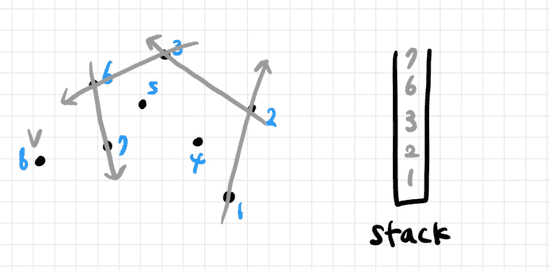 3
6
5
2
7
4
V
8
1
7
6
3
2
1
stack